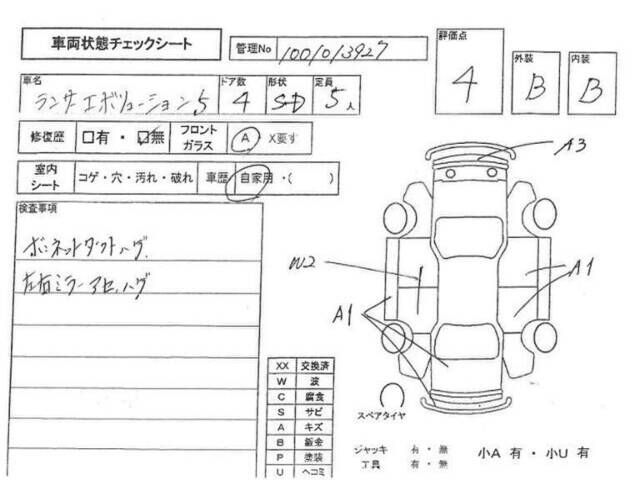 車両状態チェックシート
管理No 1001013927
評価点 4
外装 B
内装 B
車名 ランサーエボリューション5
ドア数 4
形状 SD
定員 5人
修復歴 □有・☑無
フロントガラス A X要す
室内シート コゲ・穴・汚れ・破れ
車歴 自家用・( )
検査事項
ボンネットダクトハゲ
左右ミラーアセハゲ
A3
W2
A1
A1
XX 交換済
W 波
C 腐食
S サビ
A キズ
B 鈑金
P 塗装
U ヘコミ
スペアタイヤ
ジャッキ 有・無
工具 有・無
小A 有・小U 有